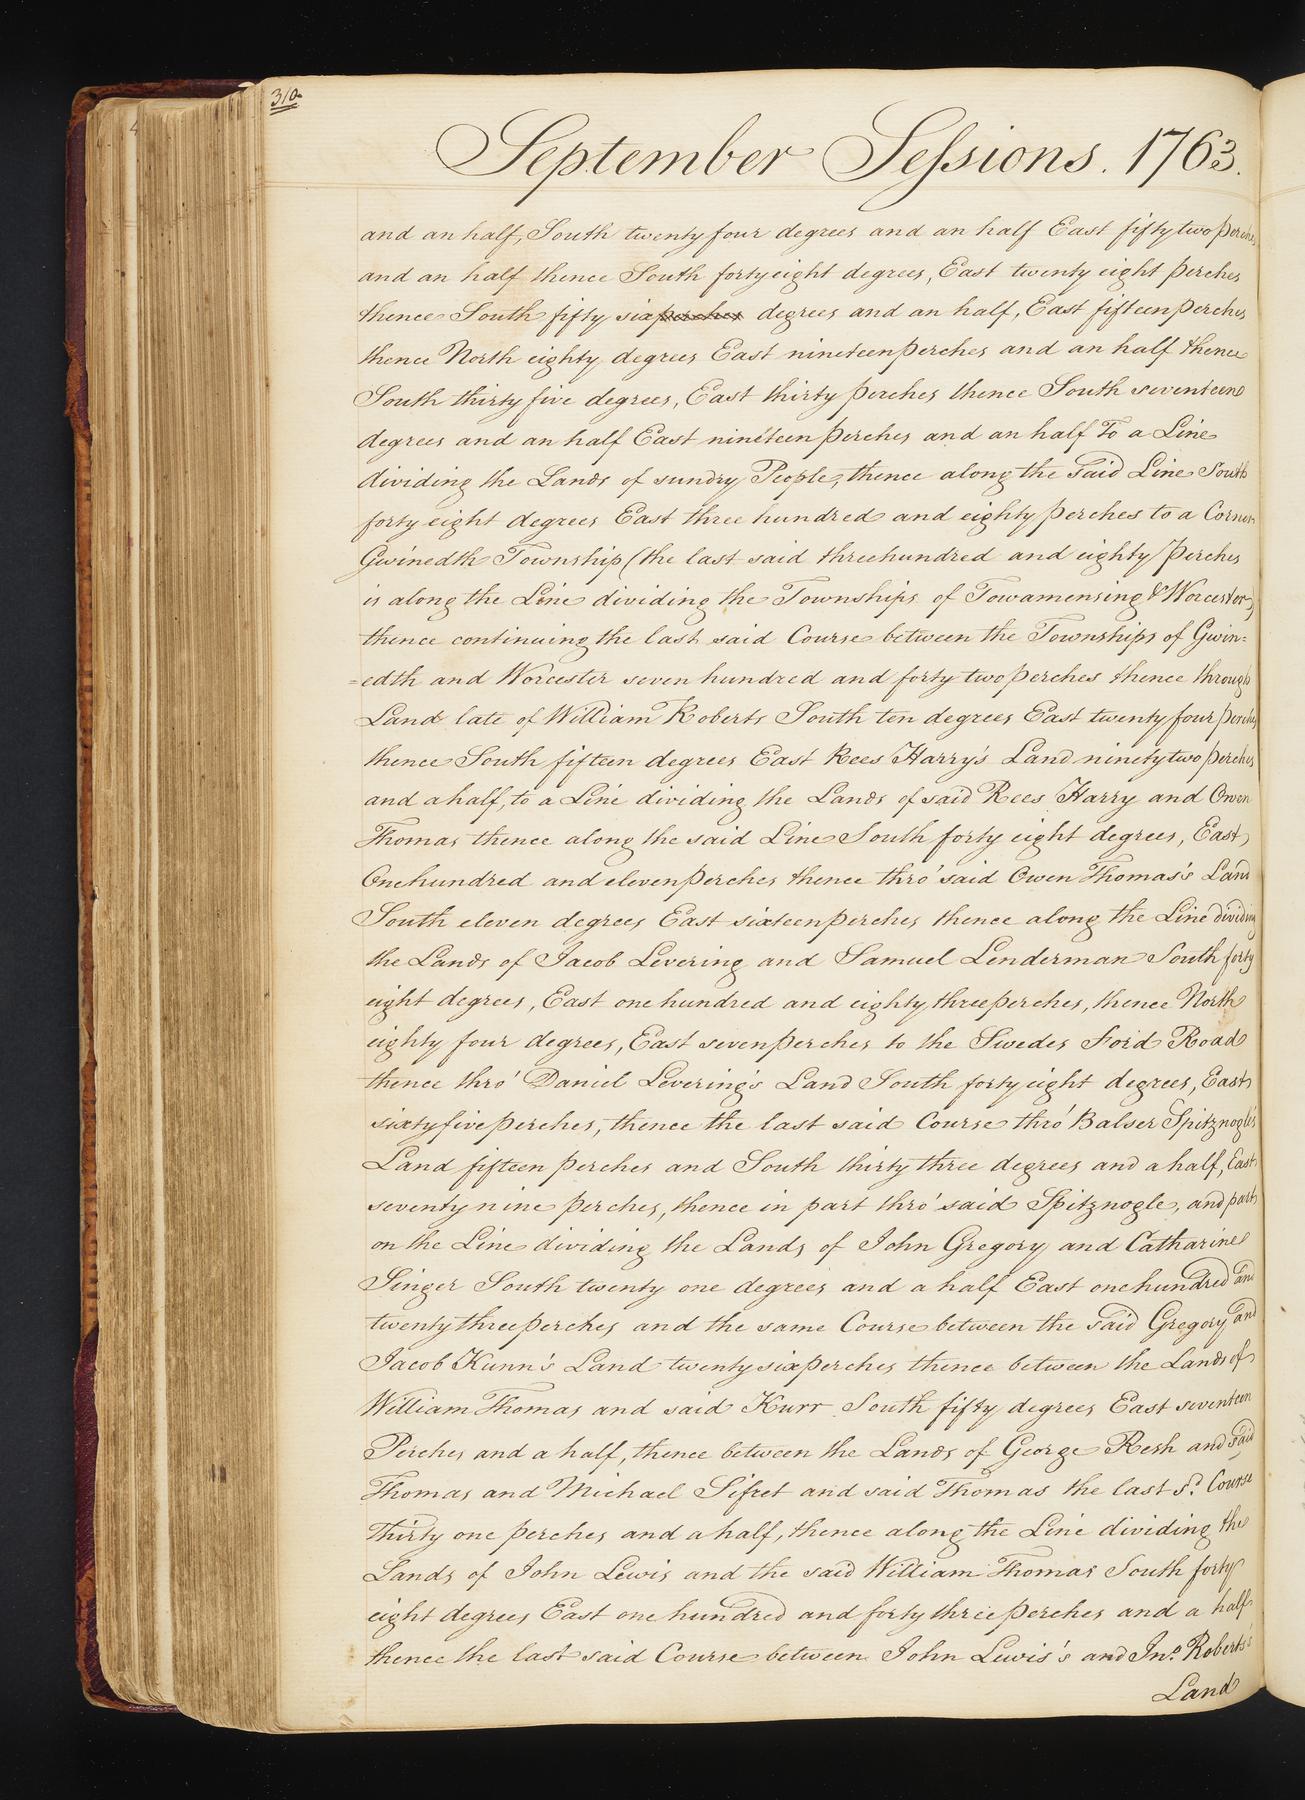 310.
September Sessions. 1763.
and an half, South twenty four degrees and an half East fifty two perches
and an half thence South forty eight degrees, East twenty eight perches
thence South fifty six perches degrees and an half, East fifteen perches
thence North eighty degrees East nineteen perches and an half thence
South thirty five degrees, East thirty perches thence South seventeen
degrees and an half East nineteen perches and an half To a Line
dividing the Lands of sundry People, thence along the said Line South
forty eight degrees East three hundred and eighty perches to a Corner
Gwinedth Township (the last said three hundred and eighty Perches
is along the Line dividing the Townships of Towamensing & Worcester)
thence continuing the last said Course between the Townships of Gwin=
=edth and Worcester seven hundred and forty two perches thence through
Land late of William Roberts South ten degrees East twenty four perches
thence South fifteen degrees East Rees Harry's Land ninety two perches
and a half, to a Line dividing the Lands of said Rees Harry and Owen
Thomas thence along the said Line South forty eight degrees, East
One hundred and eleven perches thence thro' said Owen Thomas's Land
South eleven degrees East sixteen perches thence along the Line dividing
the Lands of Jacob Levering and Samuel Lenderman South forty
eight degrees, East one hundred and eighty three perches, thence North
eighty four degrees, East seven perches to the Swedes Ford Road
thence thro' Daniel Levering's Land South forty eight degrees, East
sixty five perches, thence the last said Course thro' Balser Spitznogle's
Land fifteen perches and South thirty three degrees and a half, East
seventy nine perches, thence in part thro' said Spitznogle, and part
on the Line dividing the Lands of John Gregory and Catharine
Singer South twenty one degrees and a half East one hundred and
twenty three perches and the same Course between the said Gregory and
Jacob Kunn's Land twenty six perches thence between the Lands of
William Thomas and said Kurr South fifty degrees East seventeen
Perches and a half, thence between the Lands of George Resh and said
Thomas and Michael Sifret and said Thomas the last sd. Course
Thirty one perches and a half, thence along the Line dividing the
Lands of John Lewis and the said William Thomas South forty
eight degrees East one hundred and forty three perches and a half
thence the last said Course between John Lewis's and Jno. Roberts's
Land